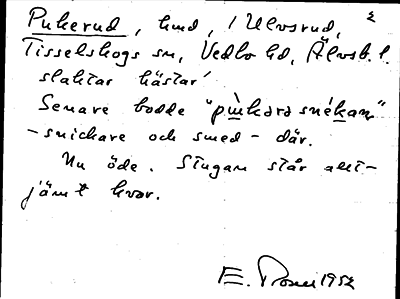 2
Pukerud, hmd, / Ulvsrud,
Tisselskogs sn, Vedbo hd, Älvsb. l.
slaktar hästar'
Senare bodde "pùkərə snékan"
- snickare och smed - där.
Nu öde. Stugan står allt-
jämt kvar.
E. Rosell 1952